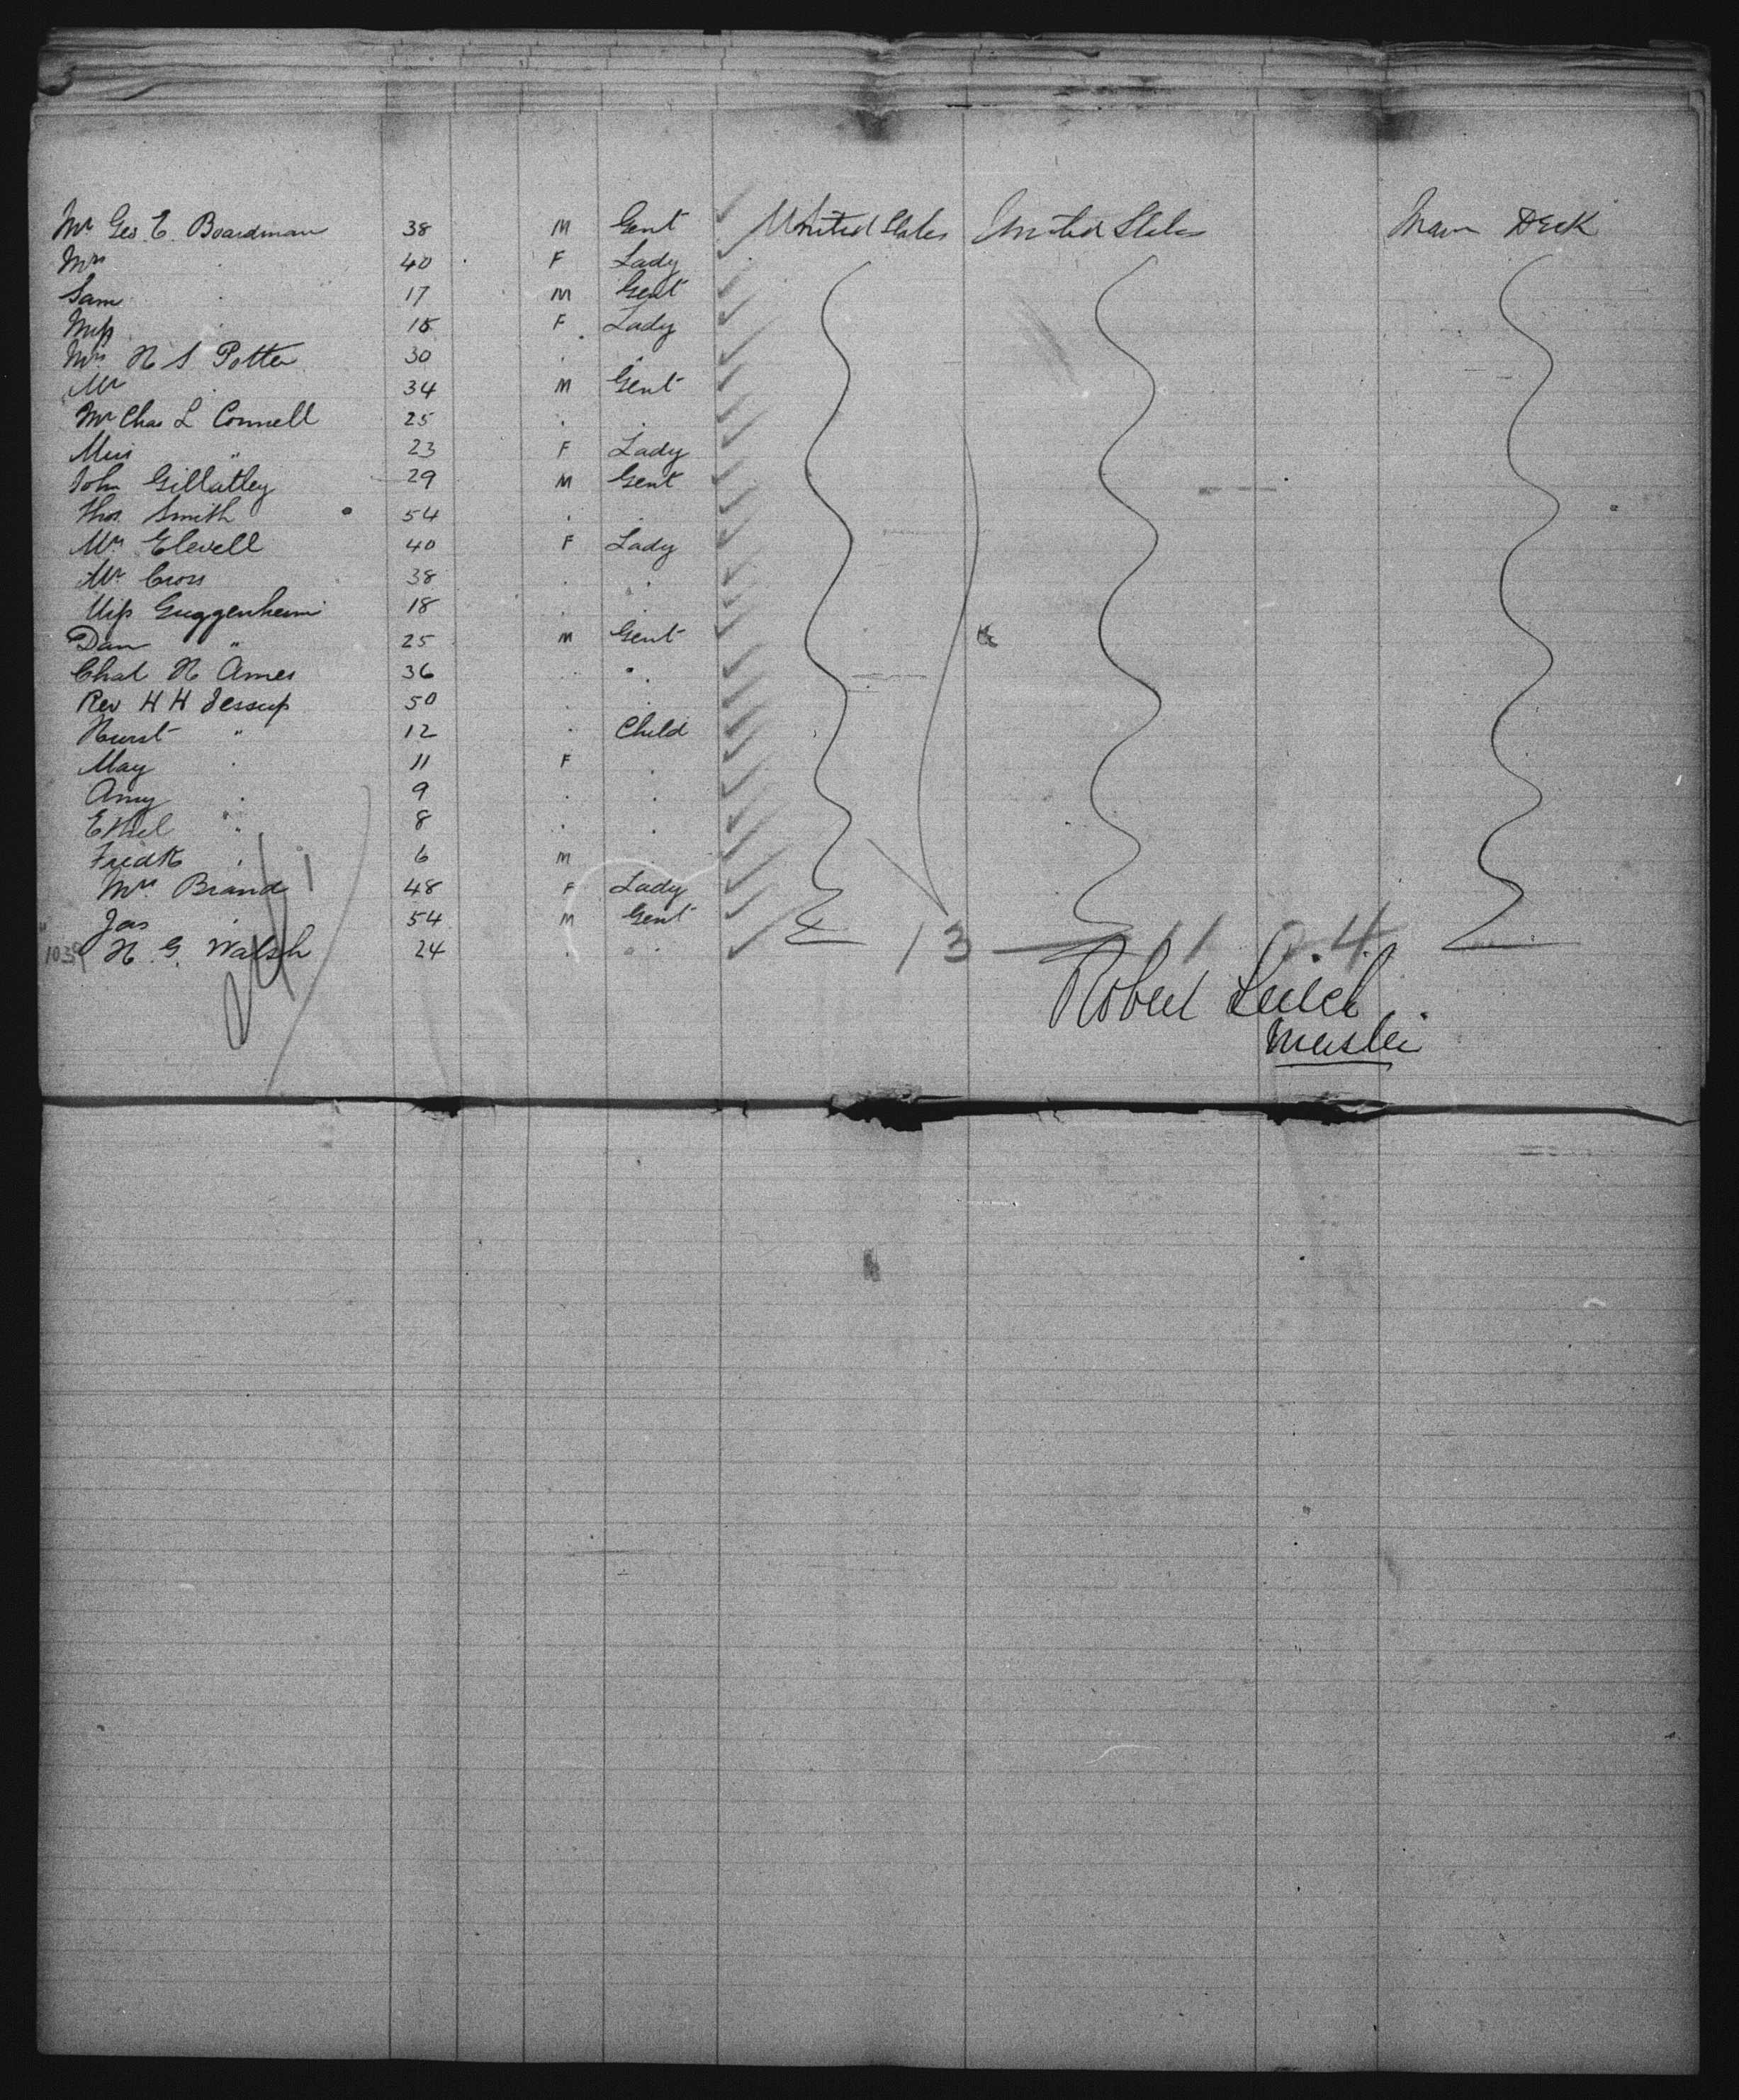 Mr Geo. E. Boardman 38 M Gent United States United States Main Deck
Mrs 40 F Lady
Sam 17 M Gent
Miss 15 F Lady
Mrs N S Potter 30 . .
Mr . 34 M Gent
Mr Chas L Connell 25 . .
Miss " 23 F Lady
John Gillatley 29 M Gent
Thos Smith 54 . .
Mrs Elevell 40 F Lady
Mrs Cross 38 . .
Miss Guggenheim 18 . .
Dan " 25 M Gent
Chas N Ames 36 . .
Rev H H Jessup 50 .
Hurst " 12 . Child
May . 11 F .
Amy . 9 . .
Ethel " 8 . .
Fredk . 6 M .
Mrs Brand 48 F Lady
Jas . 54 M Gent
1039 N. G. Walsh 24 . .
13 — 11 24
Robert Leitch
Master